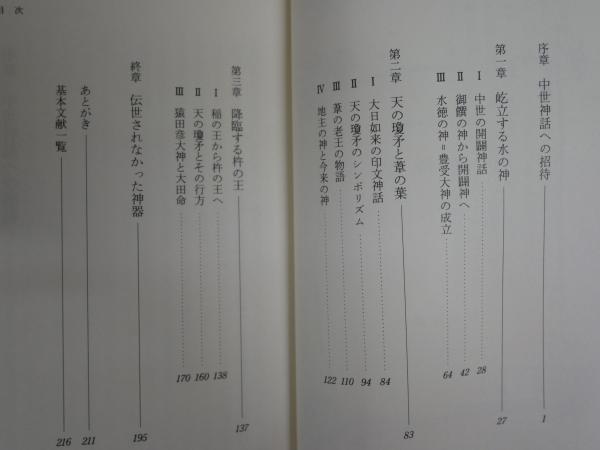 序章 中世神話への招待 1
第一章 屹立する水の神 27
Ⅰ 中世の開闢神話 28
Ⅱ 御饌の神から開闢神へ 42
Ⅲ 水徳の神=豊受大神の成立 64
第二章 天の瓊矛と葦の葉 83
Ⅰ 大日如来の印文神話 84
Ⅱ 天の瓊矛のシンボリズム 94
Ⅲ 葦の老王の物語 110
Ⅳ 地主の神と今来の神 122
目次
第三章 降臨する杵の王 137
Ⅰ 稲の王から杵の王へ 138
Ⅱ 天の瓊矛とその行方 160
Ⅲ 猿田彦大神と大田命 170
終章 伝世されなかった神器 195
あとがき 211
基本文献一覧 216